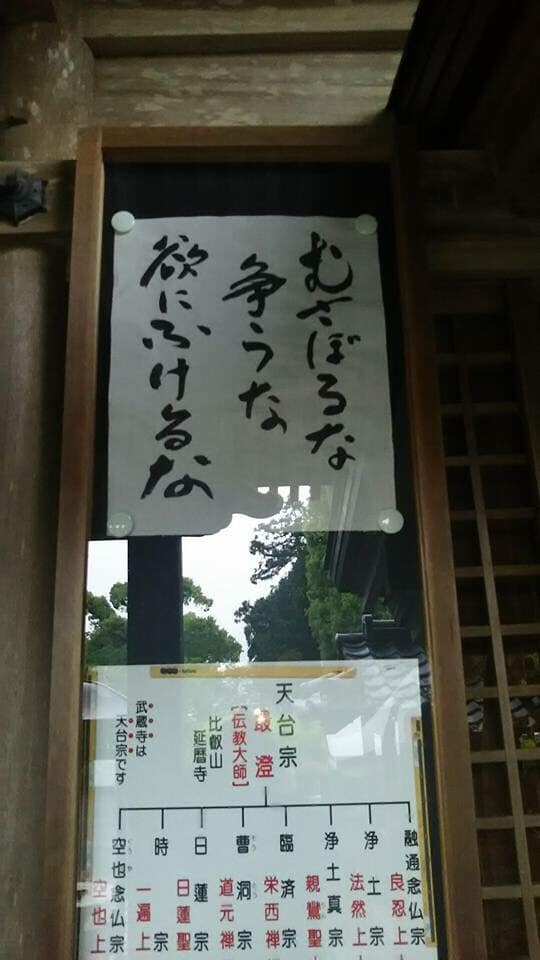 むさぼるな
争うな
欲にふけるな
天台宗
最澄
【伝教大師】
比叡山
延暦寺
武蔵寺は
天台宗です
融通念仏宗
良忍上
浄土宗
法然上
浄土真宗
親鸞聖
臨済宗
栄西禅
曹洞宗
そうとう
道元禅
日蓮宗
日蓮聖
時宗
一遍上
空也念仏宗
くうや
空也上